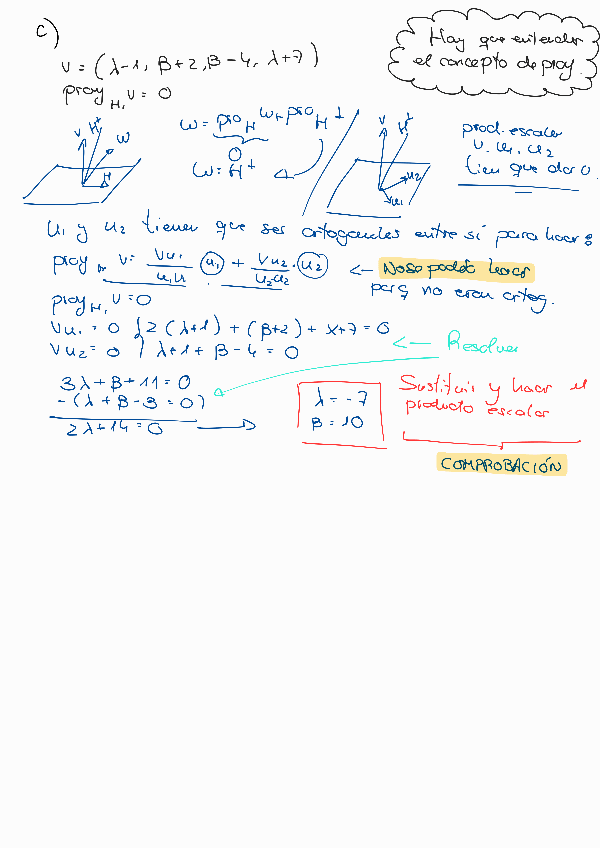 c)
Hay que entender
el concepto de proy.
v = (λ-1, β+2, β-4, λ+7)
proy H, v = 0
w = pro H w + pro H ⊥
0
w = H ⊥
v H ⊥ w H
v H ⊥ u2 u1
prod. escalar
v. u1, u2
tien que dar 0
u1 y u2 tienen que ser ortogonales entre sí para hacer:
proy H, v = Vu1/u1u1 (u1) + Vu2/u2·u2 · (u2) <- No se podía hacer
parq no eran ortog.
proy H, v = 0
Vu1 = 0 { 2(λ+1) + (β+2) + λ+7 = 0
Vu2 = 0 { λ+1 + β-4 = 0
<- Resolver
3λ+β+11 = 0
-(λ+β-3 = 0)
2λ+14 = 0 ->
λ = -7
β = 10
Sustituir y hacer el
producto escalar
COMPROBACIÓN